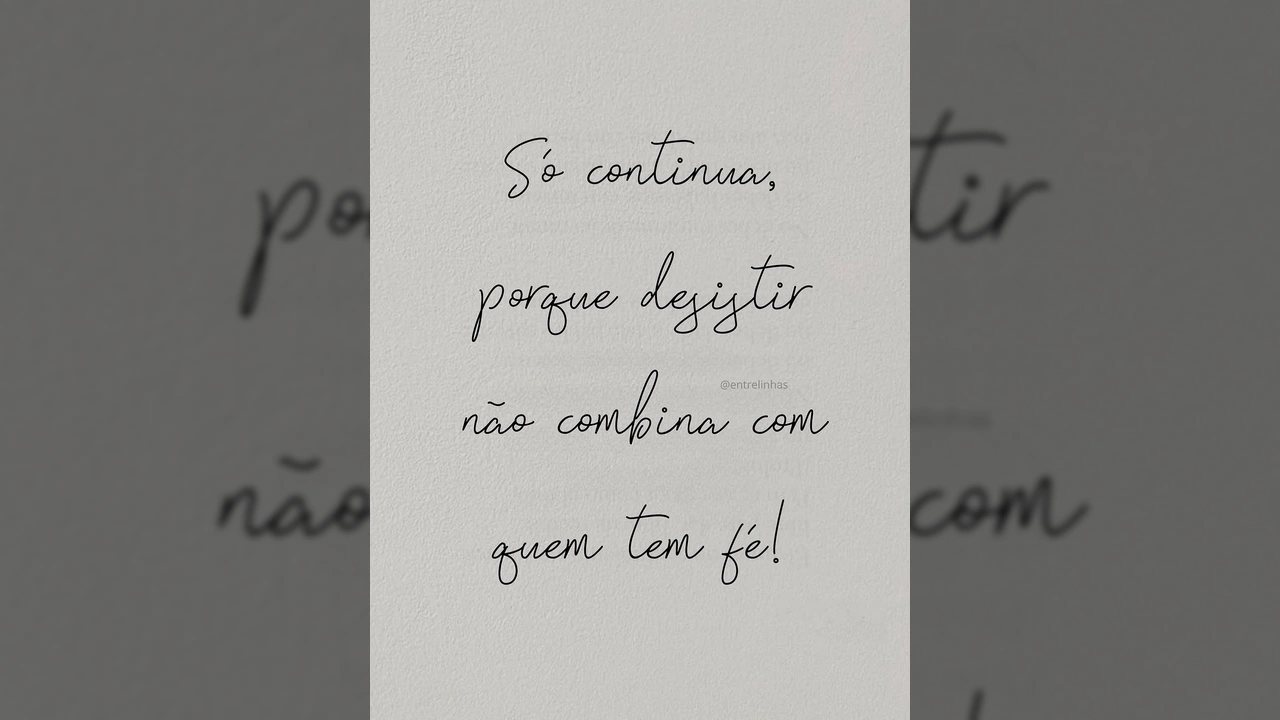 Só continua,
porque desistir
@entrelinhas
não combina com
quem tem fé!